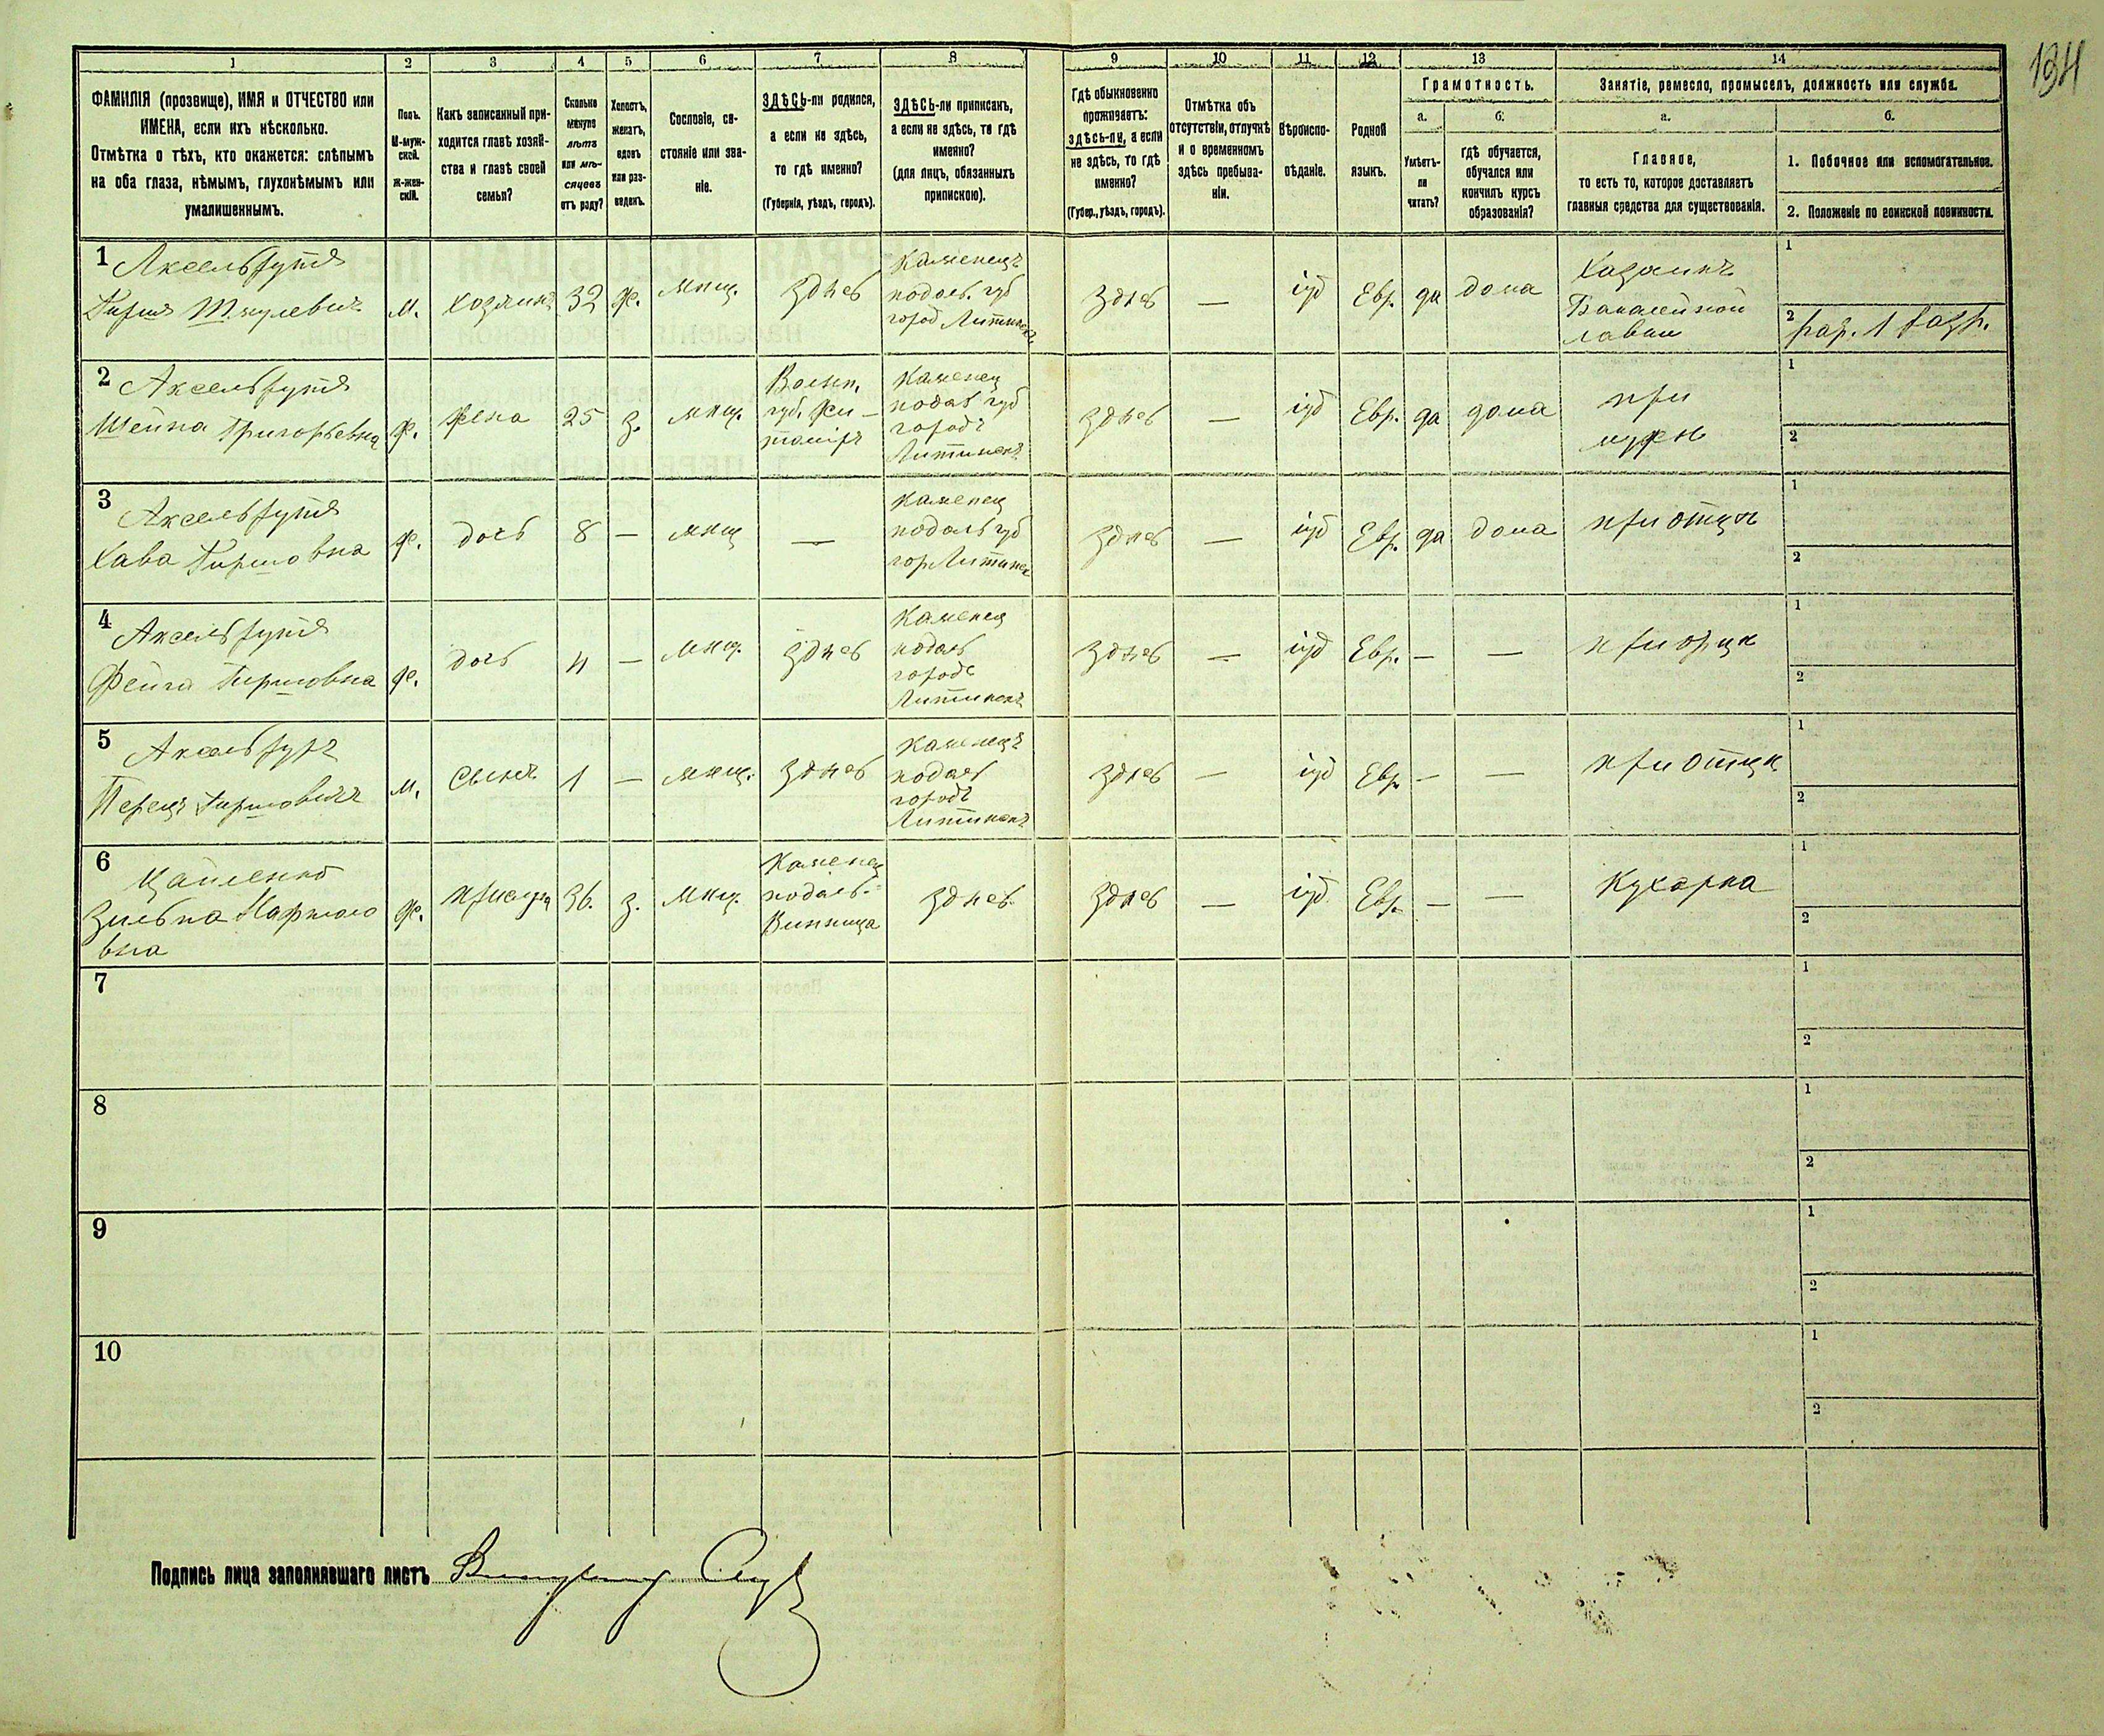 134
1
2
3
4
5
6
7
8
9
10
11
12
13
14
ФАМИЛІЯ (прозвище), ИМЯ и ОТЧЕСТВО или
ИМЕНА, если ихъ нѣсколько.
Отмѣтка о тѣхъ, кто окажется: слѣпымъ
на оба глаза, нѣмымъ, глухонѣмымъ или
умалишеннымъ.
Полъ.
М-муж-
ской.
Ж-жен-
скій.
Какъ записанный при-
ходится главѣ хозяй-
ства и главѣ своей
семьи?
Сколько
минуло
лѣтъ
или мѣ-
сяцевъ
отъ роду?
Холостъ,
женатъ,
вдовъ
или раз-
веденъ.
Сословіе, со-
стояніе или зва-
ніе.
ЗДѢСЬ-ли родился,
а если не здѣсь,
то гдѣ именно?
(Губернія, уѣздъ, городъ).
ЗДѢСЬ-ли приписанъ,
а если не здѣсь, то гдѣ
именно?
(для лицъ, обязанныхъ
припискою).
Гдѣ обыкновенно
проживаетъ:
здѣсь-ли, а если
не здѣсь, то гдѣ
именно?
(Губер., уѣздъ, городъ).
Отмѣтка объ
отсутствіи, отлучкѣ
и о временномъ
здѣсь пребыва-
ніи.
Вѣроиспо-
вѣданіе.
Родной
языкъ.
Грамотность.
а.
Умѣетъ-
ли
читать?
б.
гдѣ обучается,
обучался или
кончилъ курсъ
образованія?
Занятіе, ремесло, промыселъ, должность или служба.
а.
Главное,
то есть то, которое доставляетъ
главныя средства для существованія.
б.
1. Побочное или вспомогательное.
2. Положеніе по воинской повинности.
1
Аксельрутъ
Гиршъ Шмулевичъ
м.
хозяинъ
32
ж.
мѣщ.
здѣсь
Каменецъ
подоль. губ
город Литинск
здѣсь
—
іуд
Евр.
да
дома
Хозяинъ
Бакалейной
лавки
1
2
2
Аксельрутъ
Шейна Григорьевна
ж.
жена
25
з.
мѣщ.
Волын.
губ. Жи-
томіръ
Каменец
подол губ
городъ
Литинскъ
здѣсь
—
іуд
Евр.
да
дома
при
мужѣ
1
2
3
Аксельрутъ
Хава Гиршовна
ж.
дочь
8
—
мѣщ
—
Каменец
подоль губ
гор Литинск
здѣсь
—
іуд
Евр.
да
дома
при отцѣ
1
2
4
Аксельрутъ
Фейга Гиршовна
ж.
дочь
4
—
мѣщ.
здѣсь
Каменец
подоль
городъ
Литинскъ
здѣсь
—
іуд
Евр.
—
—
при отцѣ
1
2
5
Перецъ Гиршовичъ
м.
сынъ
1
—
мѣщ.
здѣсь
Каменецъ
подоль
городъ
Литинскъ
здѣсь
—
іуд
Евр.
—
—
при отцѣ
1
2
6
вна
ж.
36.
з.
мѣщ.
Каменец
подоль.
Винница
здѣсь.
здѣсь
—
іуд.
Евр.
—
—
Кухарка
1
2
7
1
2
8
1
2
9
1
2
10
1
2
Подпись лица заполнявшаго листъ